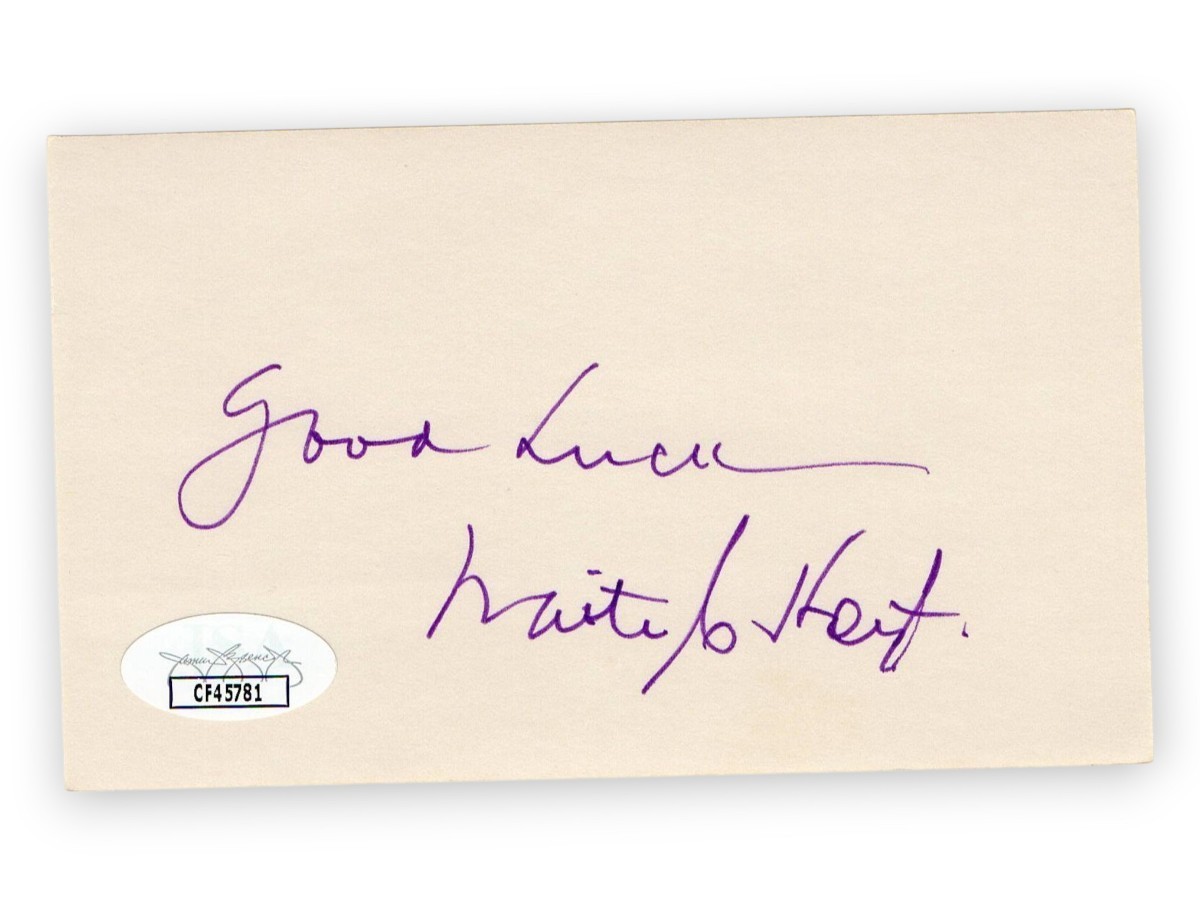 Good Luck
Waite Hoyt.
CF45781